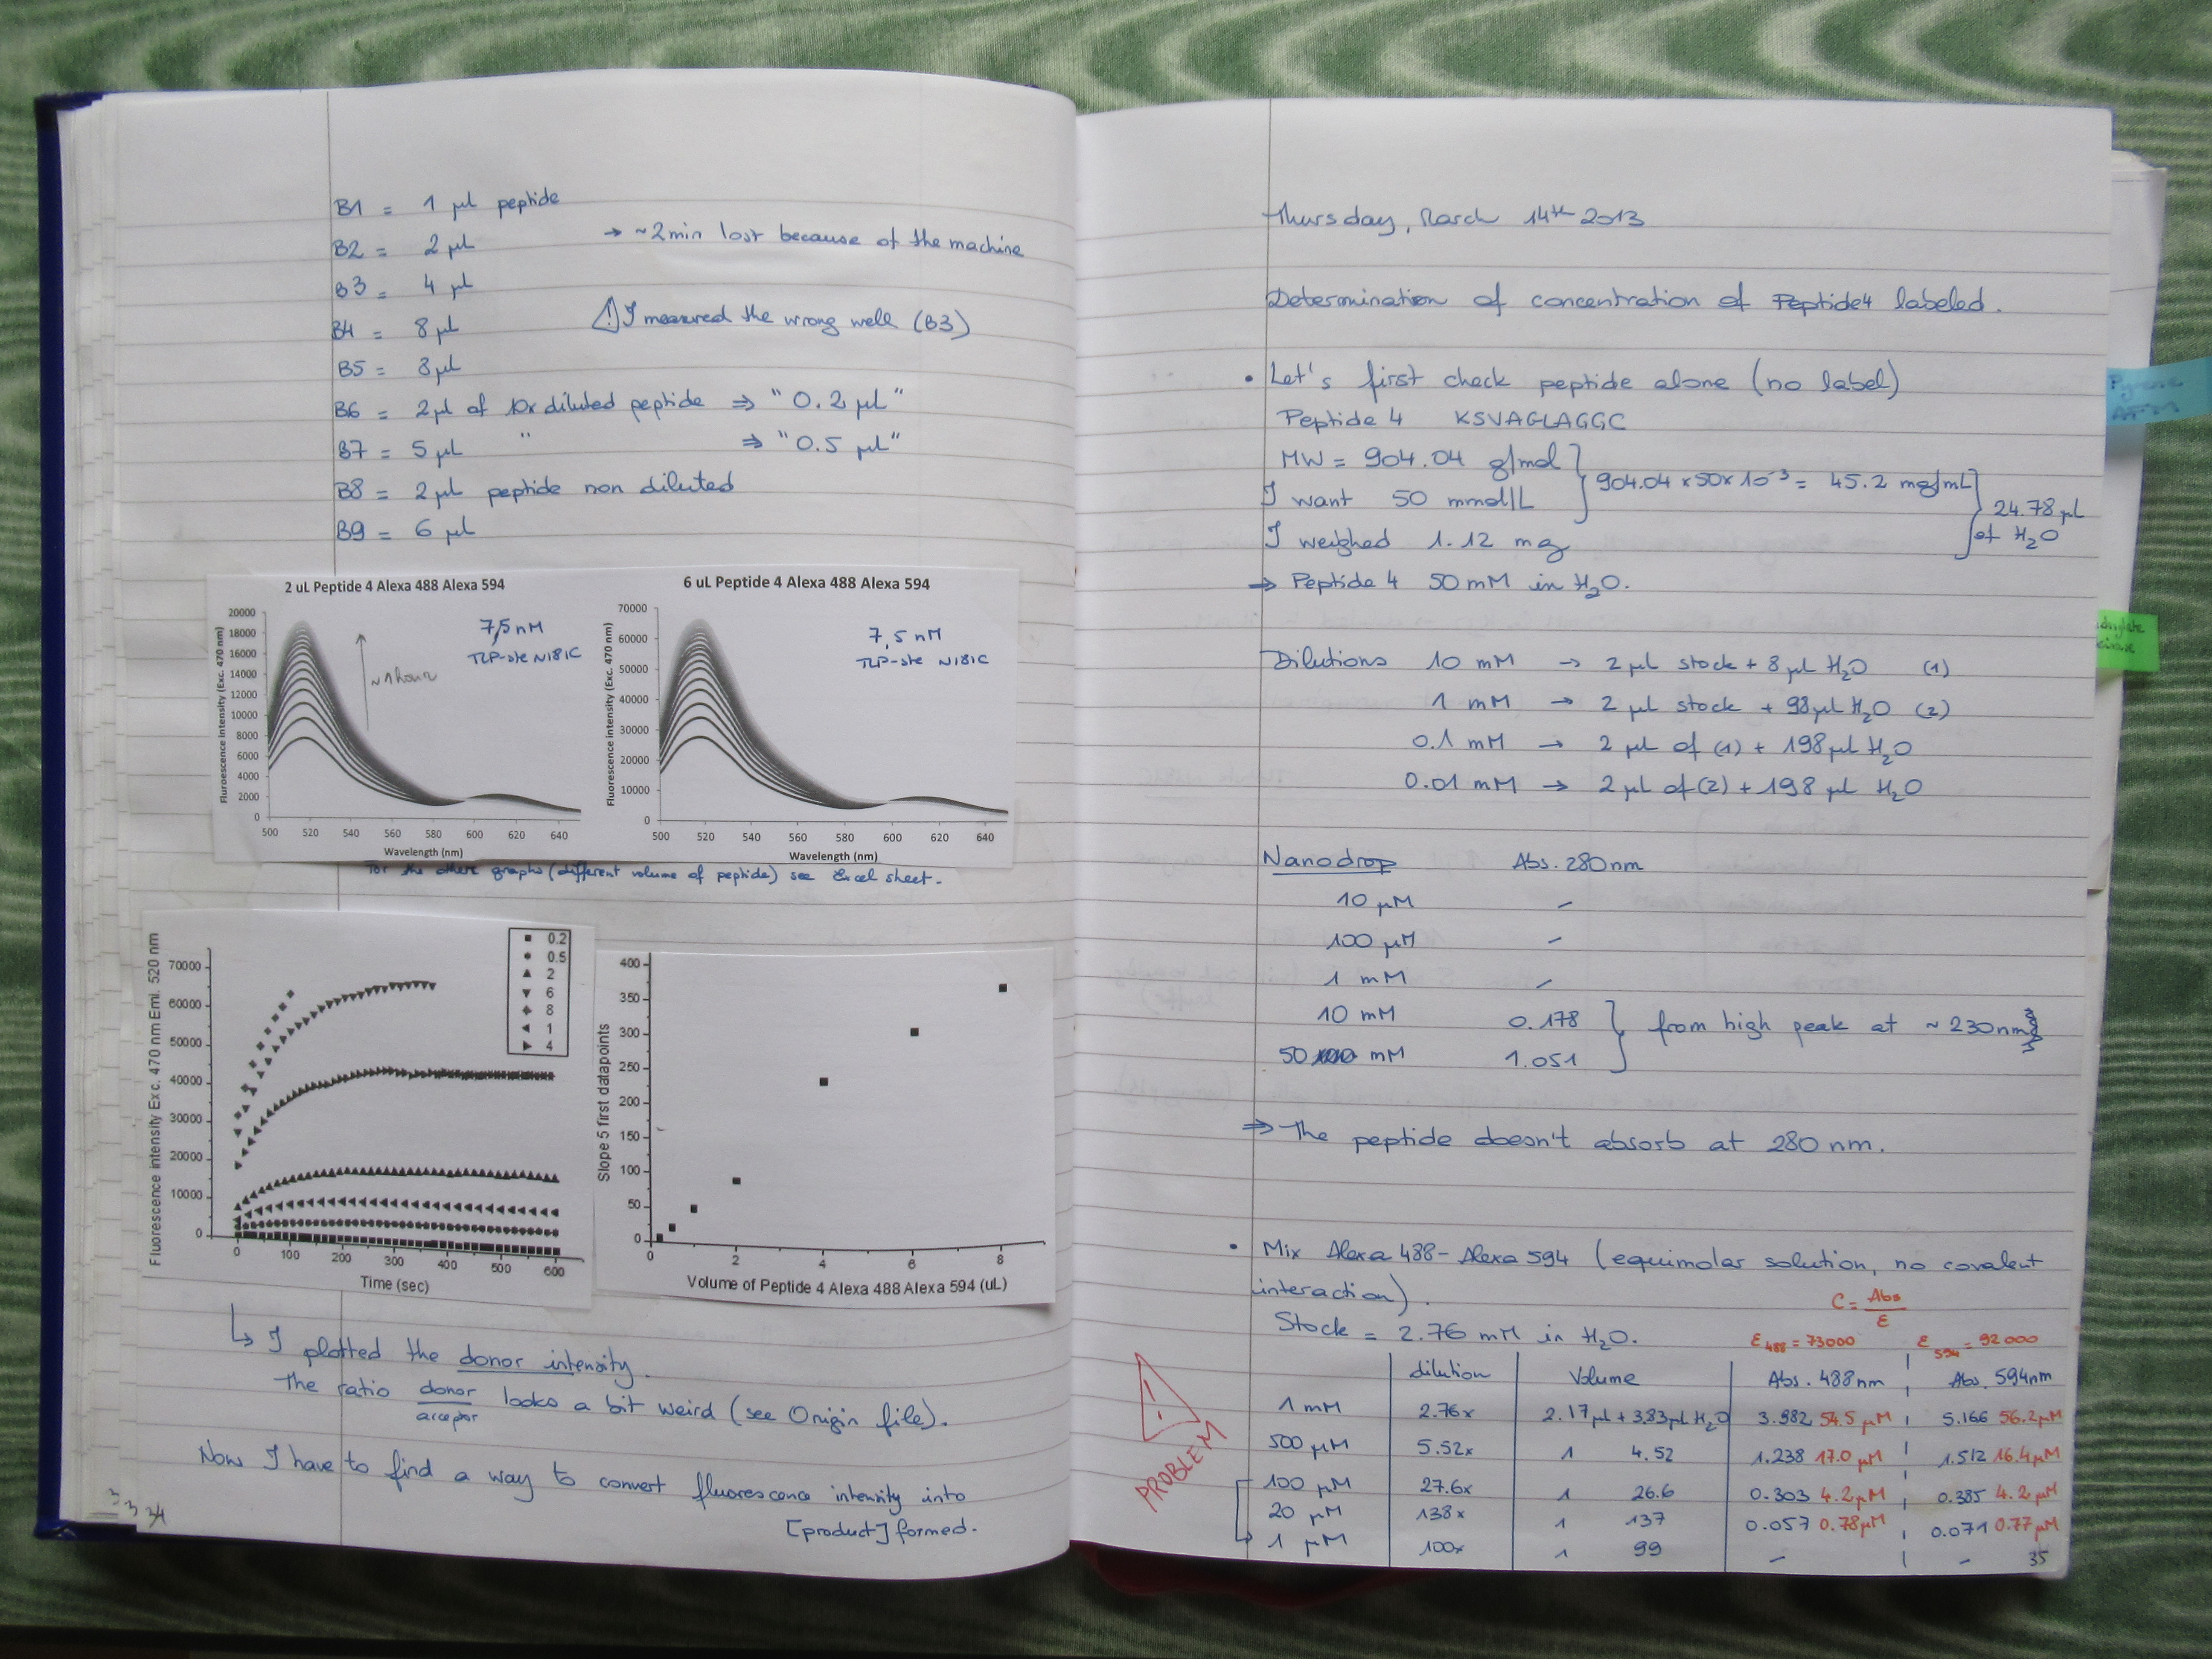 B1 = 1 µl peptide
B2 = 2 µl → ~2min lost because of the machine
B3 = 4 µl
B4 = 8 µl ⚠ I measured the wrong well (B3)
B5 = 8 µl
B6 = 2µl of 10x diluted peptide ⇒ "0.2 µl"
B7 = 5 µl " ⇒ "0.5 µl"
B8 = 2µl peptide non diluted
B9 = 6 µl
2 uL Peptide 4 Alexa 488 Alexa 594
7,5 nM
TLP-ste N181C
~1hour
Fluroescence intensity (Exc. 470 nm)
20000
18000
16000
14000
12000
10000
8000
6000
4000
2000
0
500 520 540 560 580 600 620 640
Wavelength (nm)
6 uL Peptide 4 Alexa 488 Alexa 594
7,5 nM
TLP-ste N181C
Fluorescence intensity (Exc. 470 nm)
70000
60000
50000
40000
30000
20000
10000
0
500 520 540 560 580 600 620 640
Wavelength (nm)
For the other graphs (different volume of peptide) see Excel sheet.
Fluorescence intensity Exc. 470 nm Emi. 520 nm
70000
60000
50000
40000
30000
20000
10000
0
0 100 200 300 400 500 600
Time (sec)
0.2
0.5
2
6
8
1
4
Slope 5 first datapoints
400
350
300
250
200
150
100
50
0
0 2 4 6 8
Volume of Peptide 4 Alexa 488 Alexa 594 (uL)
↳ I plotted the donor intensity.
The ratio donor/acceptor looks a bit weird (see Origin file).
Now I have to find a way to convert fluorescence intensity into
[product] formed.
34
Thursday, March 14th 2013
Determination of concentration of Peptide4 labeled.
• Let's first check peptide alone (no label)
Peptide 4 KSVAGLAGGC
MW = 904.04 g/mol
I want 50 mmol/L } 904.04 x50x10⁻³ = 45.2 mg/mL
I weighed 1.12 mg } 24.78 µl of H₂O
⇒ Peptide 4 50 mM in H₂O.
Dilutions 10 mM → 2 µl stock + 8 µl H₂O (1)
1 mM → 2 µl stock + 98µl H₂O (2)
0.1 mM → 2 µl of (1) + 198 µl H₂O
0.01 mM → 2 µl of (2) + 198 µl H₂O
Nanodrop Abs. 280nm
10 µM –
100 µM –
1 mM –
10 mM 0.178 } from high peak at ~230nm
50 mM 1.051
⇒ The peptide doesn't absorb at 280 nm.
• Mix Alexa 488-Alexa 594 (equimolar solution, no covalent
interaction).
C = Abs/ε
Stock = 2.76 mM in H₂O. ε488 = 73000 ε594 = 92000
dilution Volume Abs. 488nm Abs. 594nm
1 mM 2.76x 2.17µl + 3.83µl H₂O 3.982 54.5 µM 5.166 56.2µM
500 µM 5.52x 1 4.52 1.238 17.0 µM 1.512 16.4µM
100 µM 27.6x 1 26.6 0.303 4.2µM 0.385 4.2µM
20 µM 138x 1 137 0.057 0.78µM 0.071 0.77µM
1 µM 100x 1 99 – –
PROBLEM
35